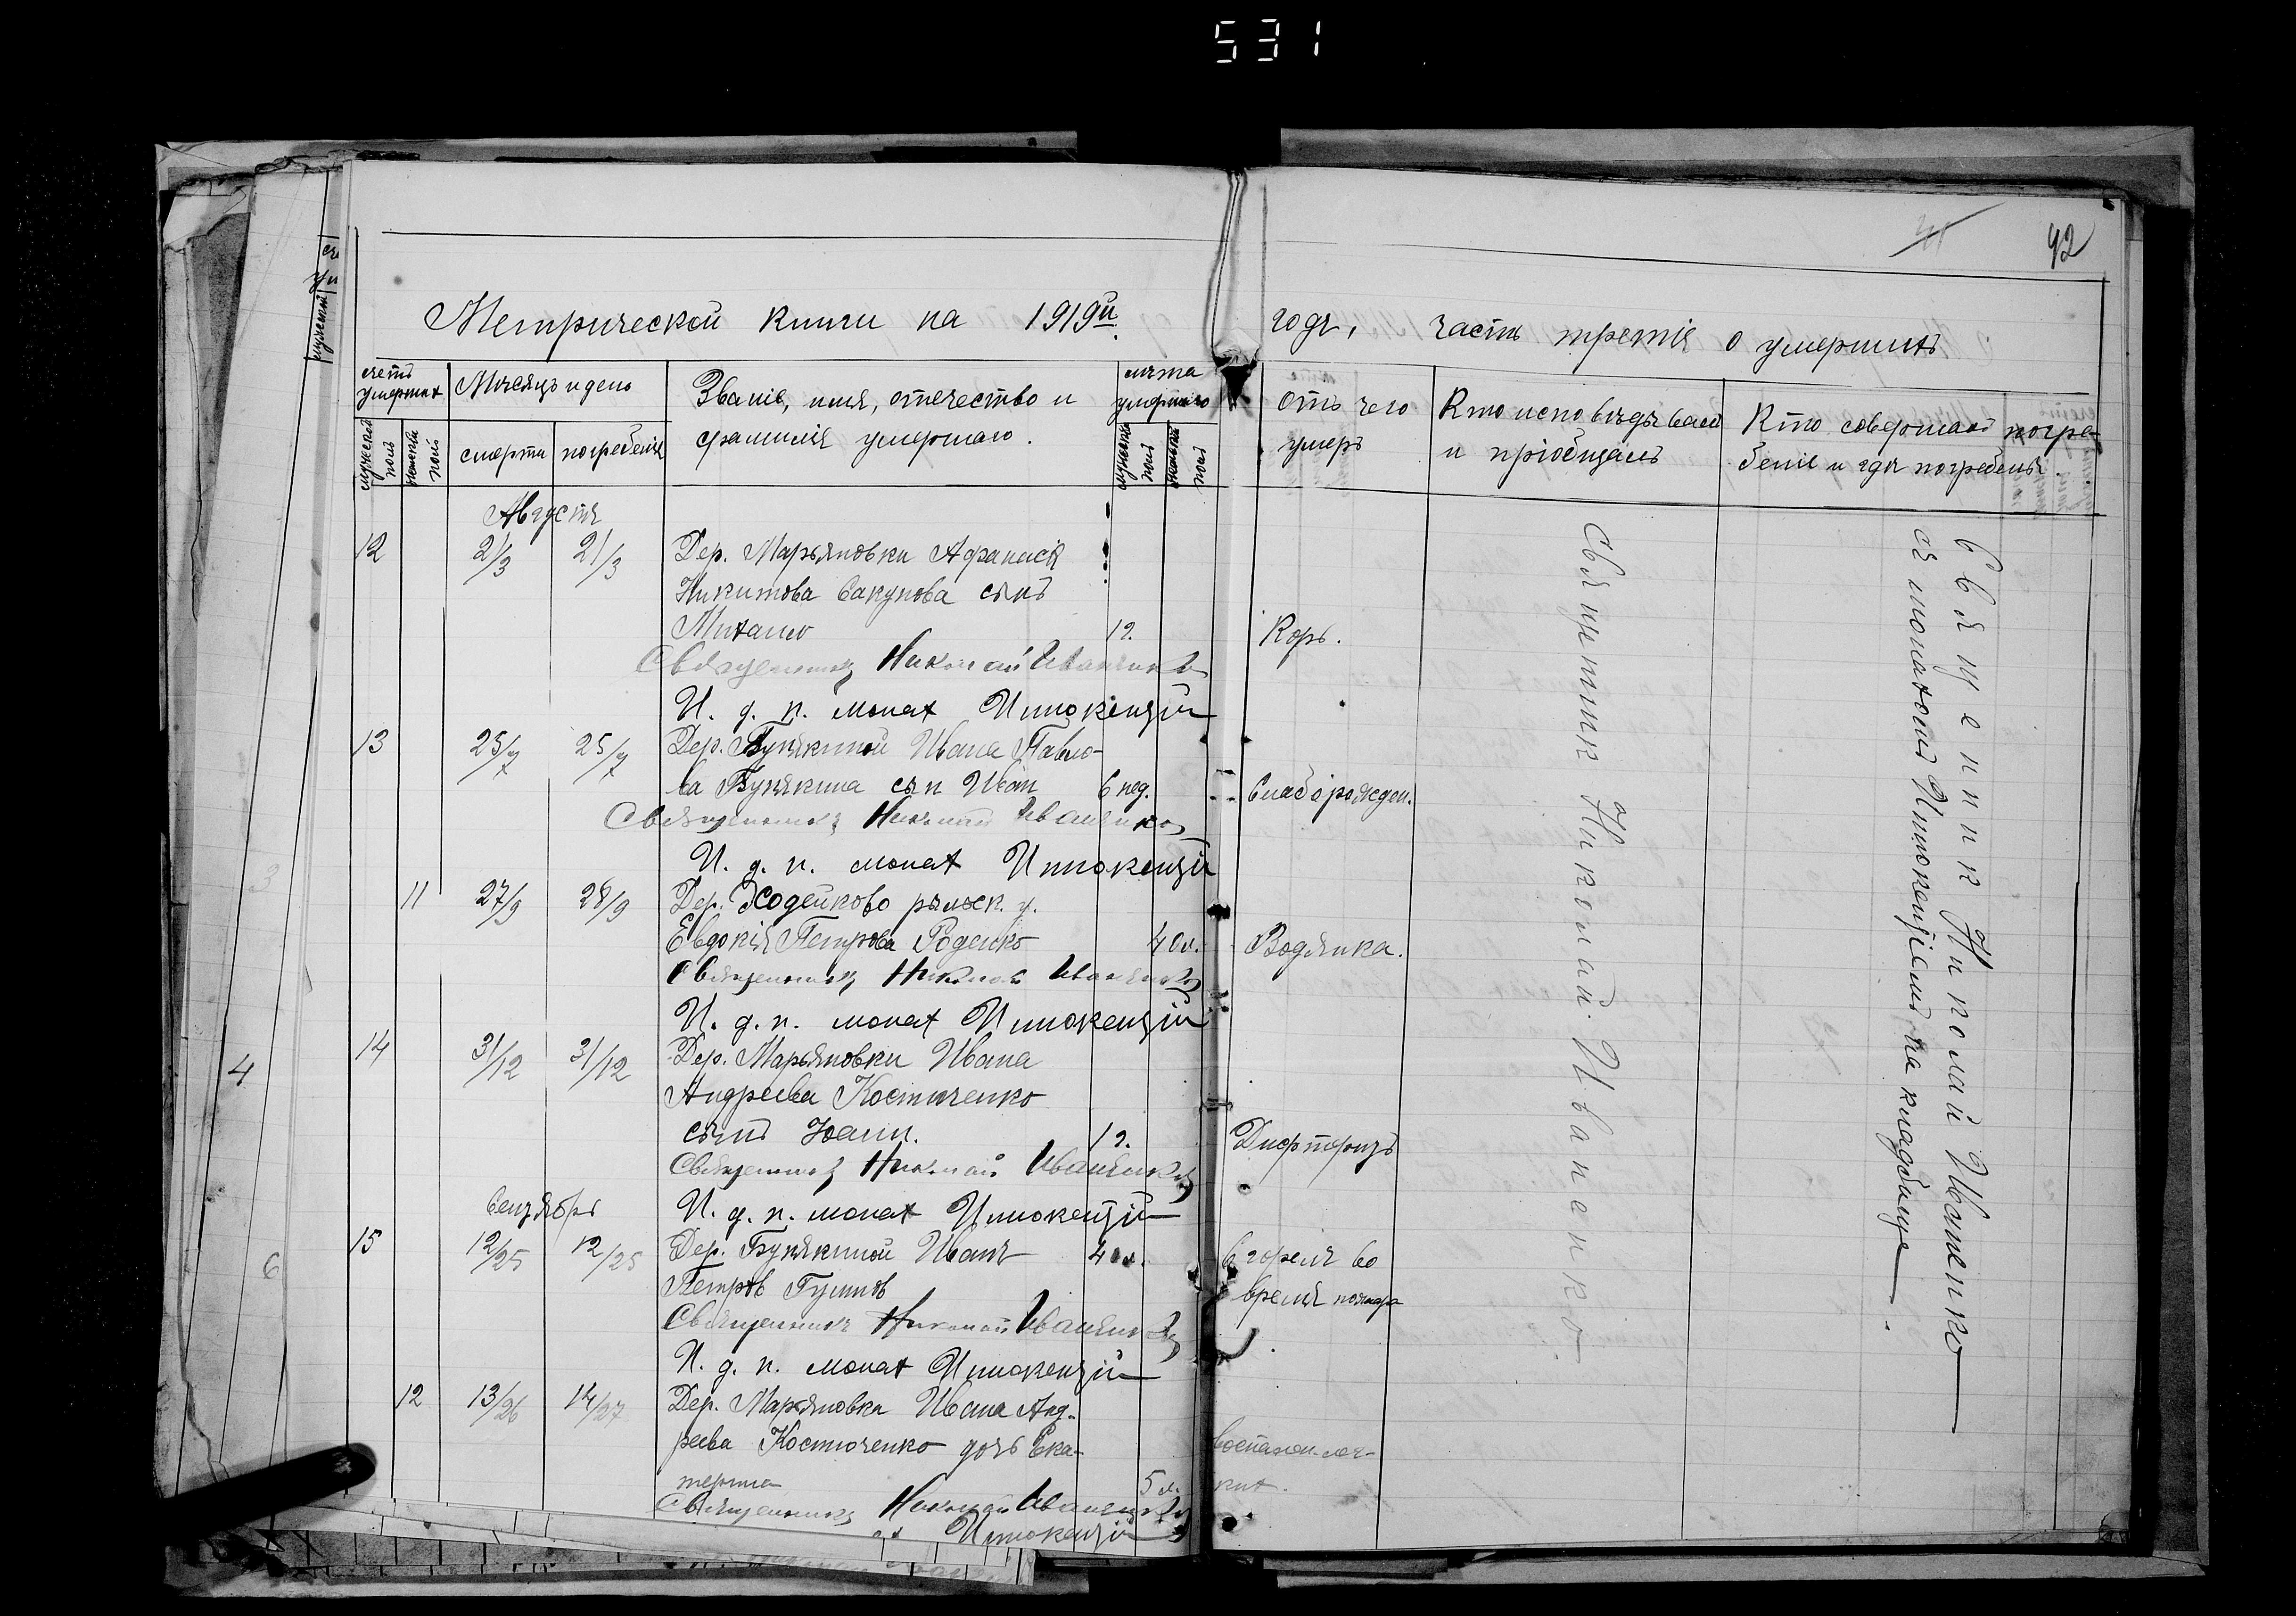 531
42
Метрической книги на 1919й годъ, часть третія о умершихъ
счетъ умершихъ
мужеской полъ
женской полъ
Мѣсяцъ и день
смерти
погребенія
Званіе, имя, отчество и
фамилія умершаго.
лѣта умершаго
мужеска полъ
женска полъ
Отъ чего
умеръ
Кто исповѣдывалъ
и пріобщалъ
Кто совершалъ погре-
беніе и гдѣ погребены.
Августъ
12 21/3 21/3 Дер. Марьяновки Афанасія
Никитова Сакунова сынъ
Михаилъ 1г. Корь.
Священникъ Николай Иваненко
И. д. п. монах Иннокентій
13 25/7 25/7 Дер. Бунякиной Ивана Павло-
ва Бунякина сын Иван 6 нед. Слаборожден.
Священникъ Николай Иваненко
И. д. п. монах Иннокентій
11 27/9 28/9 Дер. Ходейково рыльск. у.
Евдокія Петрова Роденко 40л. Водянка.
Священникъ Николай Иваненко
И. д. п. монах Иннокентій
14 31/12 31/12 Дер. Марьяновки Ивана
Андреева Костюченко
сынъ Іоанн. 1г. Дифторизъ
Священникъ Николай Иваненко
И. д. п. монах Иннокентій
Сентябрь
15 12/25 12/25 Дер. Бунякиной Иванъ 40л. Сгорелъ во
Петров Гуляев время пожара
Священникъ Николай Иваненко
И. д. п. монах Иннокентій
12 13/26 14/27 Дер. Марьяновка Ивана Анд-
реева Костюченко дочь Ека- воспален. лег-
терина 5л. ких.
Священникъ Николай Иваненко
Иннокентій
Священник Николай Иваненко
Священник Николай Иваненко
съ монахомъ Иннокентіемъ на кладбище
4
6
3